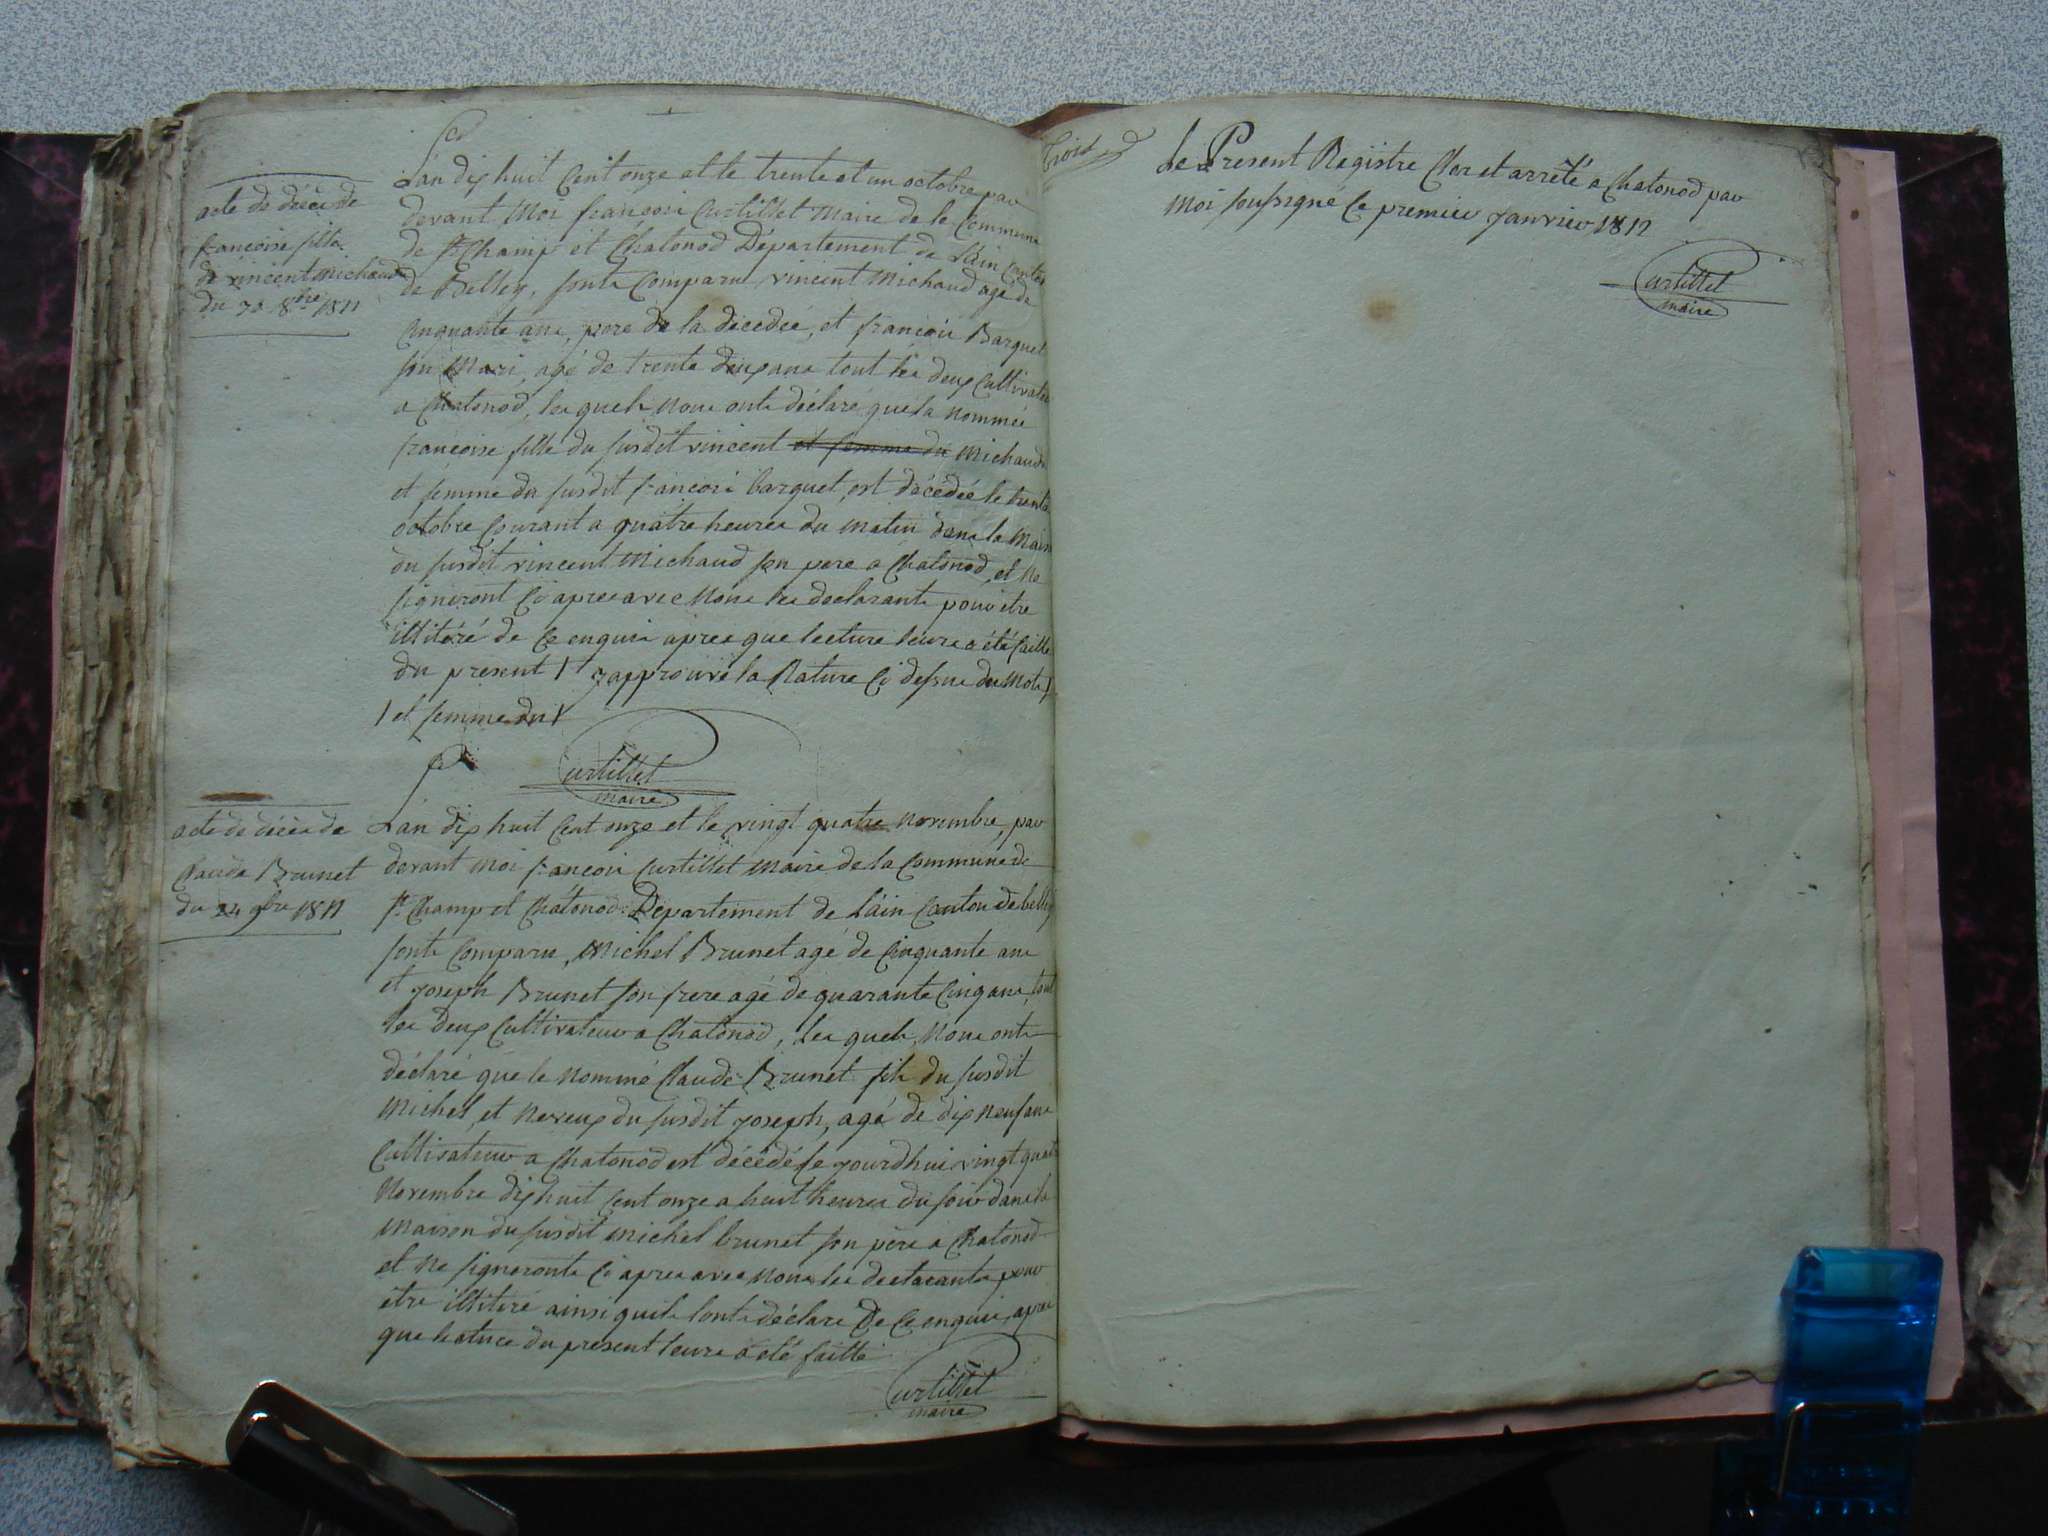 acte de décès de
francoise fille
de vincent Michaud
du 30 8bre 1811
L'an dix huit Cent onze et le trente et un octobre par
devant Moi françois Curtillet Maire de la Commune
de St Champ et Chatonod Département de L'ain Canton
de Belley, sonts Comparu vincent Michaud agé de
Cinquante ans, pere de la décédée, et françois Barquet
son Mari, agé de trente deux ans tout les deux Cultivateur
a Chatonod, les quels nous onts déclaré que la nommée
francoise fille du susdit vincent et femme du Michaud
et femme du susdit françois barquet, est décédée le trente
octobre Courant a quatre heures du matin dans la Maison
du susdit vincent Michaud son pere a Chatonod, et ne
signeront Ci apres avec Nous les declarants pour être
illitéré de Ce enquis apres que lecture leurs a été faitte
du present / japprouve la Rature Ci dessus du mots /
/ et femme du /
Curtillet
maire
acte de décès de
Claude Brunet
du 24 9bre 1811
L'an dix huit Cent onze et le vingt quatre novembre, par
devant moi françois Curtillet Maire de la Commune de
St Champ et Chatonod Departement de L'ain Canton de belley
sonts Comparu, Michel Brunet agé de Cinquante ans
et joseph Brunet son frere agé de quarante Cinq ans, tout
les deux Cultivateur a Chatonod, Les quels, Nous onts
déclaré que le nommé Claude Brunet fils du susdit
Michel, et Neveux du susdit joseph, agé de dix neuf ans
Cultivateur a Chatonod est décédé Ce jourdhui vingt quatre
Novembre dix huit Cent onze a huit heures du soir dans la
maison du susdit michel brunet son père a Chatonod
et Ne signeronts Ci apres avec Nous les declarants pour
être illitéré ainsi quils lonts déclaré de Ce enquis, apres
que lecture du present leurs a été faitte
Curtillet
maire
trois
Le Present Registre Clos et arrêté a Chatonod par
Moi soussigné Ce premier janvier 1812
Curtillet
maire